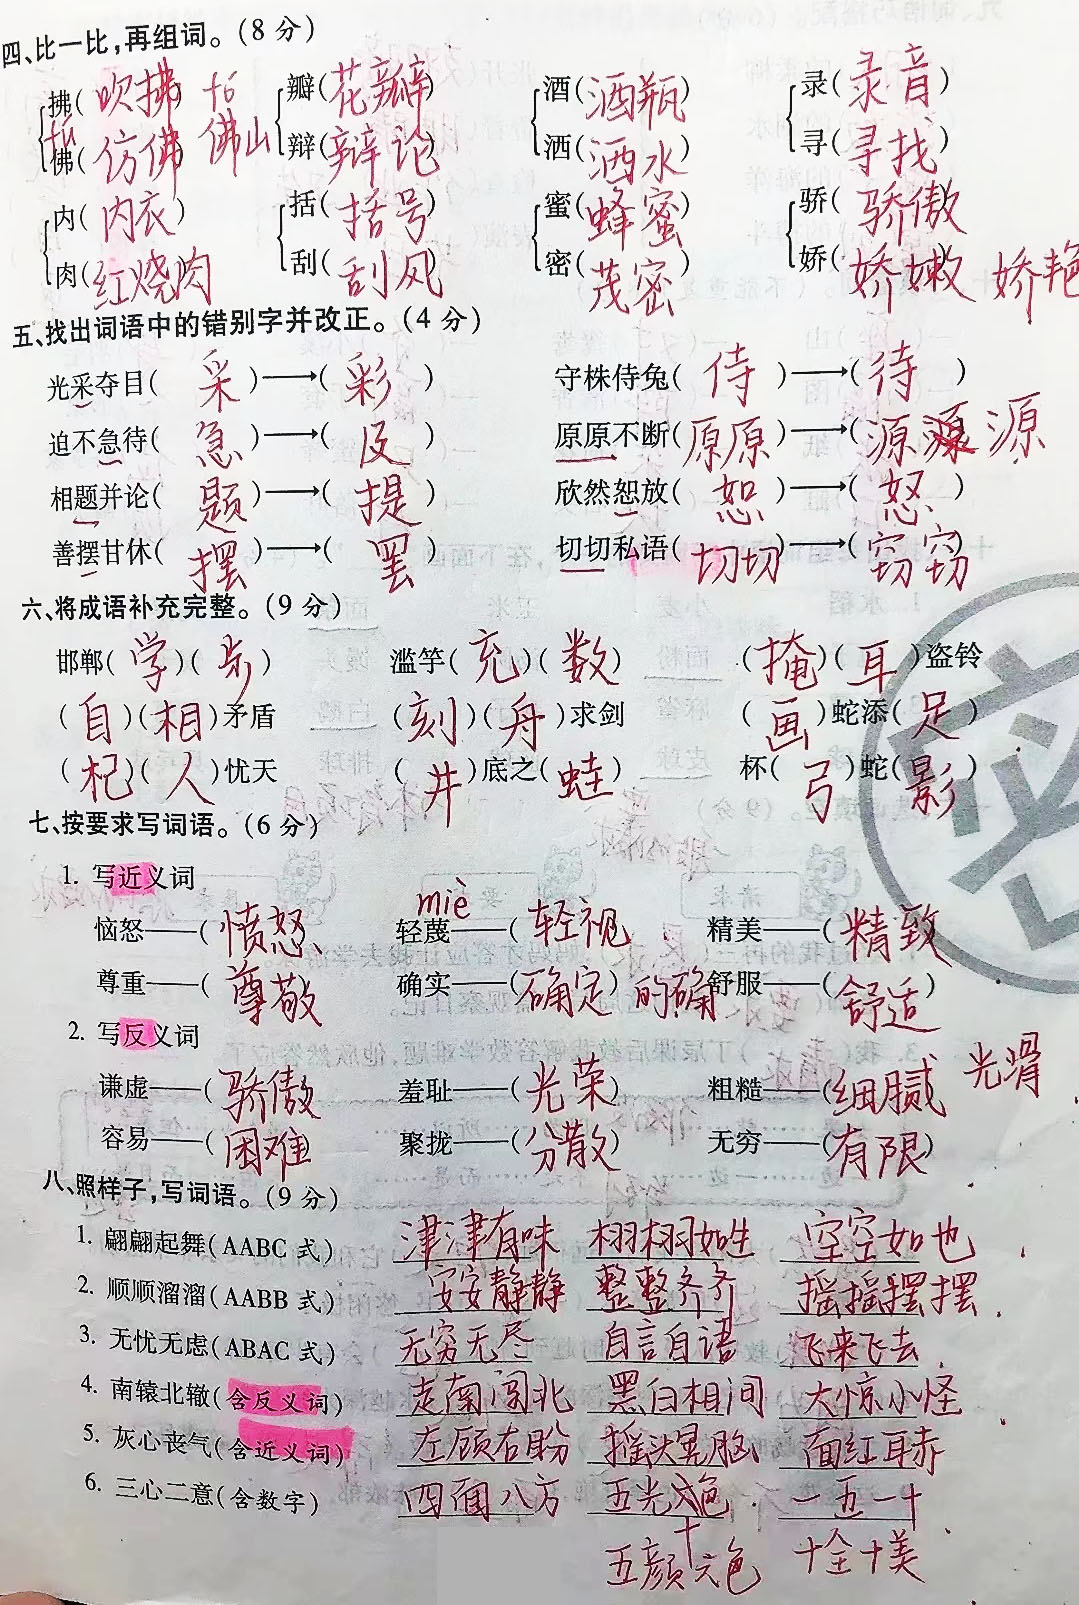 四、比一比,再组词。(8 分)
拂(吹拂) 瓣(花瓣) 酒(酒瓶) 录(录音)
佛(仿佛 佛山 辩(辩论) 洒(洒水) 寻(寻找)
内(内衣) 括(括号) 蜜(蜂蜜) 骄(骄傲)
肉(红烧肉) 刮(刮风) 密(茂密) 娇(娇嫩 娇艳
五、找出词语中的错别字并改正。(4 分)
光采夺目(采)→(彩) 守株侍兔(侍)→(待)
迫不急待(急)→(及) 原原不断(原原)→(源源 源
相题并论(题)→(提) 欣然恕放(恕)→(怒)
善摆甘休(摆)→(罢) 切切私语(切切)→(窃窃)
六、将成语补充完整。(9 分)
邯郸(学)(步) 滥竽(充)(数) (掩)(耳)盗铃
(自)(相)矛盾 (刻)(舟)求剑 (画)蛇添(足)
(杞)(人)忧天 (井)底之(蛙) 杯(弓)蛇(影)
七、按要求写词语。(6 分)
1. 写近义词
miè
恼怒——(愤怒) 轻蔑——(轻视) 精美——(精致)
尊重——(尊敬) 确实——(确定) 的确 舒服——(舒适)
2. 写反义词
谦虚——(骄傲) 羞耻——(光荣) 粗糙——(细腻) 光滑
容易——(困难) 聚拢——(分散) 无穷——(有限)
八、照样子,写词语。(9 分)
1. 翩翩起舞(AABC 式) 津津有味 栩栩如生 空空如也
2. 顺顺溜溜(AABB 式) 安安静静 整整齐齐 摇摇摆摆
3. 无忧无虑(ABAC 式) 无穷无尽 自言自语 飞来飞去
4. 南辕北辙(含反义词) 走南闯北 黑白相间 大惊小怪
5. 灰心丧气(含近义词) 左顾右盼 摇头晃脑 面红耳赤
6. 三心二意(含数字) 四面八方 五光十色 一五一十
五颜六色 十全十美